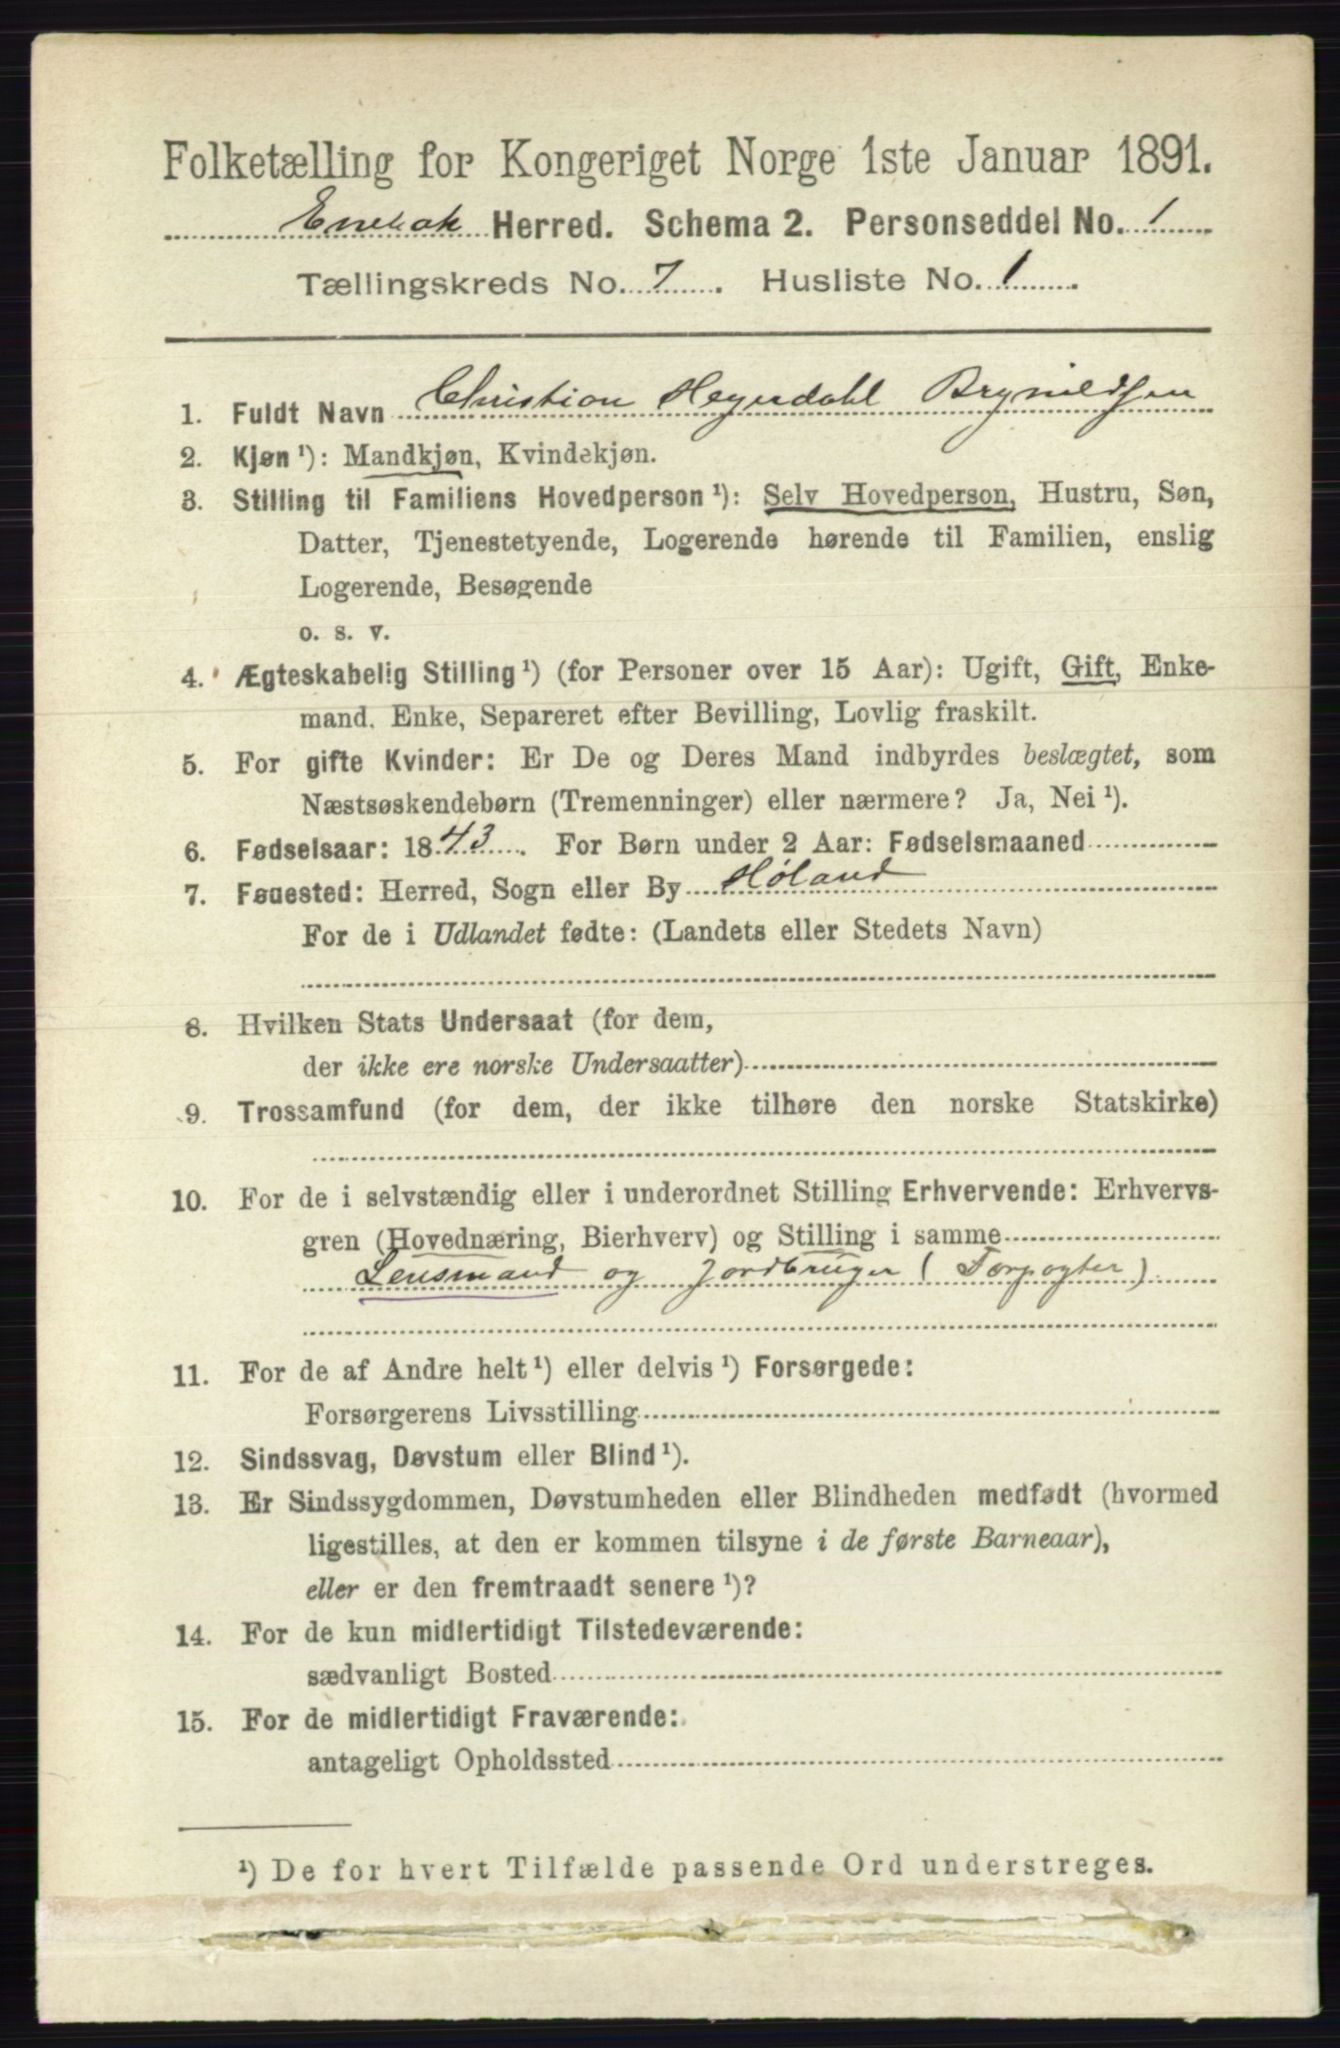 Folketælling for Kongeriget Norge 1ste Januar 1891.
Enebak Herred. Schema 2. Personseddel No. 1
Tællingskreds No. 7. Husliste No. 1.
1. Fuldt Navn Christian Heyerdahl Brynildsen
2. Kjøn ¹): Mandkjøn, Kvindekjøn.
3. Stilling til Familiens Hovedperson ¹): Selv Hovedperson, Hustru, Søn,
Datter, Tjenestetyende, Logerende hørende til Familien, enslig
Logerende, Besøgende
o. s. v.
4. Ægteskabelig Stilling ¹) (for Personer over 15 Aar): Ugift, Gift, Enke-
mand, Enke, Separeret efter Bevilling, Lovlig fraskilt.
5. For gifte Kvinder: Er De og Deres Mand indbyrdes beslægtet, som
Næstsøskendebørn (Tremenninger) eller nærmere? Ja, Nei ¹).
6. Fødselsaar: 1843. For Børn under 2 Aar: Fødselsmaaned
7. Fødested: Herred, Sogn eller By Høland
For de i Udlandet fødte: (Landets eller Stedets Navn)
8. Hvilken Stats Undersaat (for dem,
der ikke ere norske Undersaatter)
9. Trossamfund (for dem, der ikke tilhøre den norske Statskirke)
10. For de i selvstændig eller i underordnet Stilling Erhvervende: Erhvervs-
gren (Hovednæring, Bierhverv) og Stilling i samme
Lensmand og Jordbruger (Forpagter)
11. For de af Andre helt ¹) eller delvis ¹) Forsørgede:
Forsørgerens Livsstilling
12. Sindssvag, Døvstum eller Blind ¹).
13. Er Sindssygdommen, Døvstumheden eller Blindheden medfødt (hvormed
ligestilles, at den er kommen tilsyne i de første Barneaar),
eller er den fremtraadt senere ¹)?
14. For de kun midlertidigt Tilstedeværende:
sædvanligt Bosted
15. For de midlertidigt Fraværende:
antageligt Opholdssted
¹) De for hvert Tilfælde passende Ord understreges.